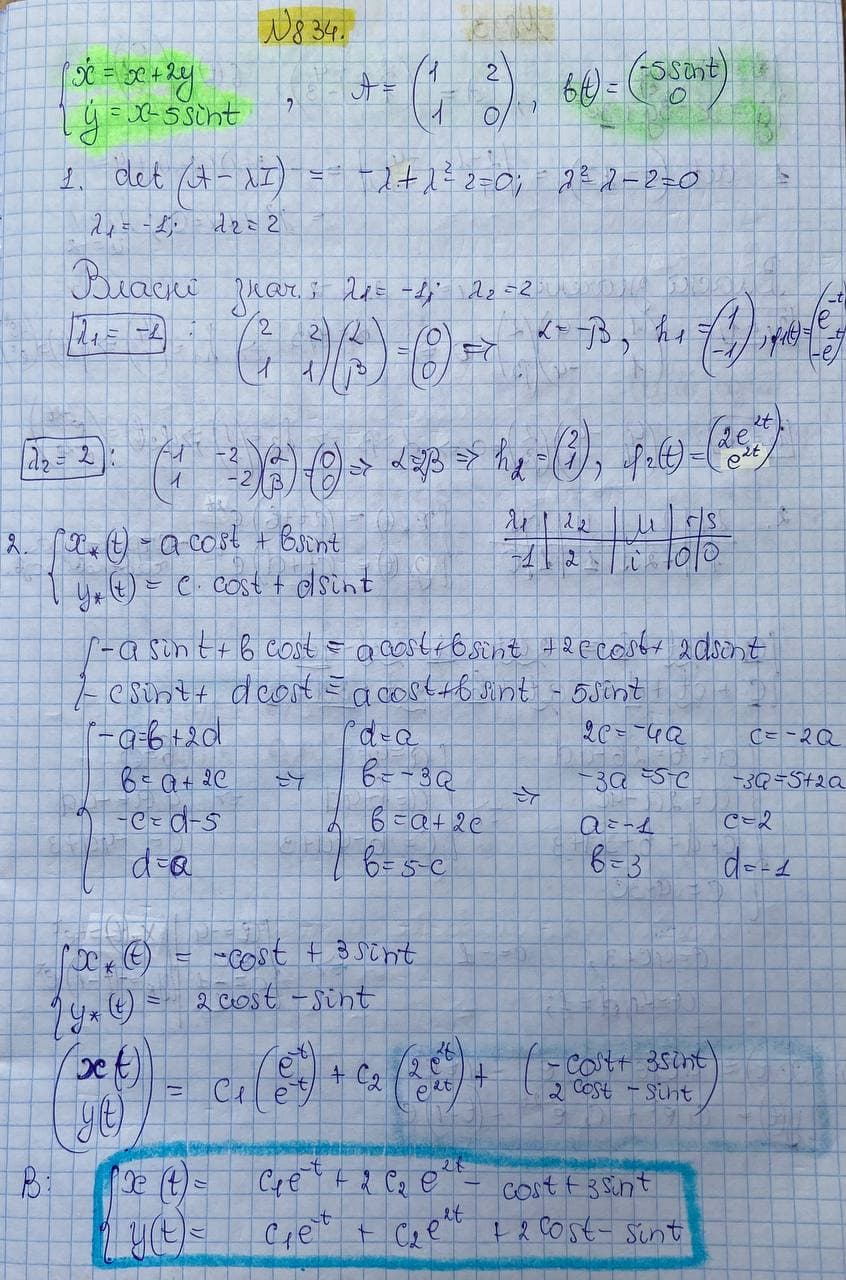 N834.
{ ẋ = x+2y
{ ẏ = x-5sint , A = (1 2; 1 0), b(t) = (-5sint; 0)
1. det (A-λI) = -λ+λ²-2=0; λ²-λ-2=0
λ₁=-1; λ₂=2
Власні знач.: λ₁=-1; λ₂=2
λ₁=-1 : (2 2; 1 1)(α; β) = (0; 0) => α=-β, h₁=(1; -1), φ₁(t)=(e^-t; -e^-t)
λ₂=2 : (-1 -2; 1 -2)(α; β) = (0; 0) => α=2β => h₂=(2; 1), φ₂(t)=(2e^2t; e^2t).
λ₁ | λ₂ | μ | r | s
-1 | 2 | i | 0 | 0
2. { x*(t) = a cost + bsint
{ y*(t) = c · cost + dsint
{ -a sint + b cost = acost+bsint +2ccost+ 2dsint
{ -csint+ dcost = acost+bsint - 5sint
{ -a=b+2d => { d=a => 2c=-4a c=-2a
{ b=a+2c { b=-3a -3a=5-c -3a=5+2a
{ -c=d-5 { b=a+2c a=-1 c=2
{ d=a { b=5-c b=3 d=-1
{ x*(t) = -cost + 3sint
{ y*(t) = 2cost - sint
(x(t); y(t)) = C₁(e^-t; e^-t) + C₂(2e^2t; e^2t) + (-cost+ 3sint; 2cost - sint)
В: { x(t)= C₁e^-t + 2C₂e^2t - cost+3sint
{ y(t)= C₁e^-t + C₂e^2t +2cost- sint